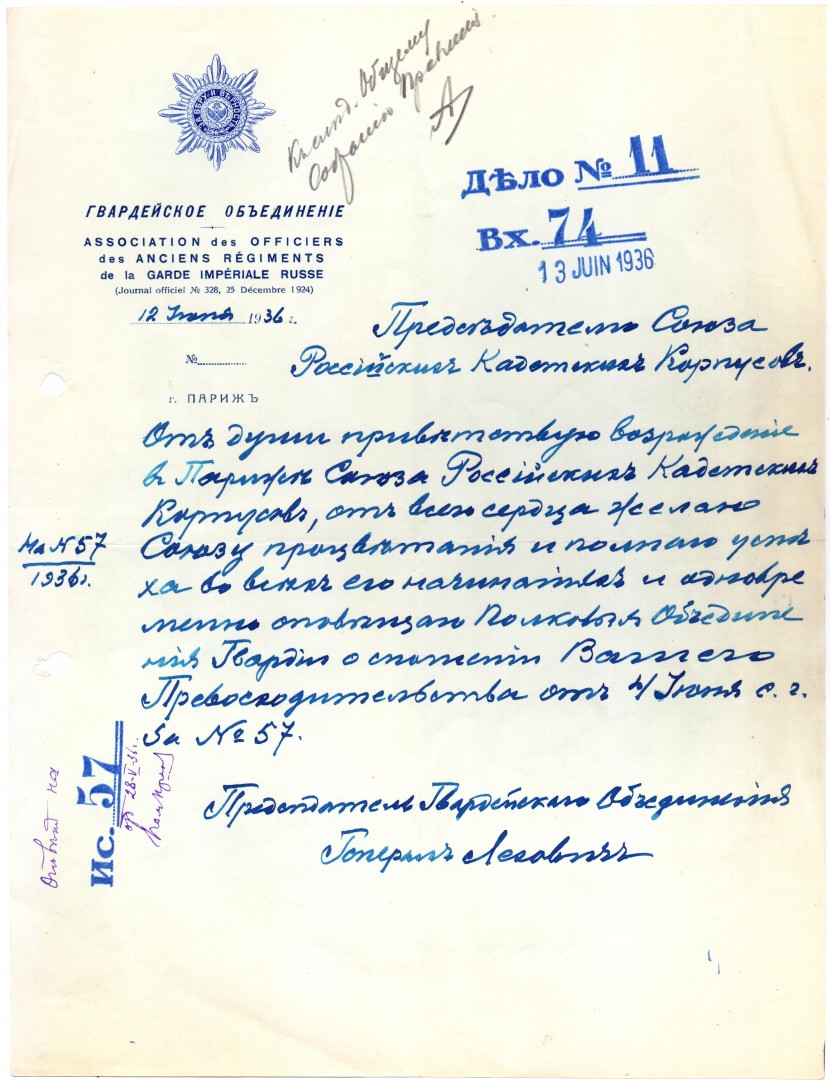 ЗА ВѢРУ И ВѢРНОСТЬ
Общему
Собранію Правленія
Дѣло № 11
Вх. 74
13 JUIN 1936
ГВАРДЕЙСКОЕ ОБЪЕДИНЕНІЕ
ASSOCIATION des OFFICIERS
des ANCIENS RÉGIMENTS
de la GARDE IMPÉRIALE RUSSE
(Journal officiel № 328, 25 Décembre 1924)
12 Іюня 1936 г.
№
г. ПАРИЖЪ
Предсѣдателю Союза
Россійскихъ Кадетскихъ Корпусовъ.
Отъ души привѣтствую возрожденіе
въ Парижѣ Союза Россійскихъ Кадетскихъ
Корпусовъ, отъ всего сердца желаю
Союзу процвѣтанія и полнаго успѣ
ха во всѣхъ его начинаніяхъ и одновре
менно оповѣщаю Полковыя Объедине
нія Гвардіи о сношеніи Вашего
Превосходительства отъ 4/ Іюня с. г.
За № 57.
На № 57
1936 г.
Предсѣдатель Гвардейскаго Объединенія
Генералъ Леховичъ
Отвѣтъ на
Ис. 57
от 28-V-36 г.